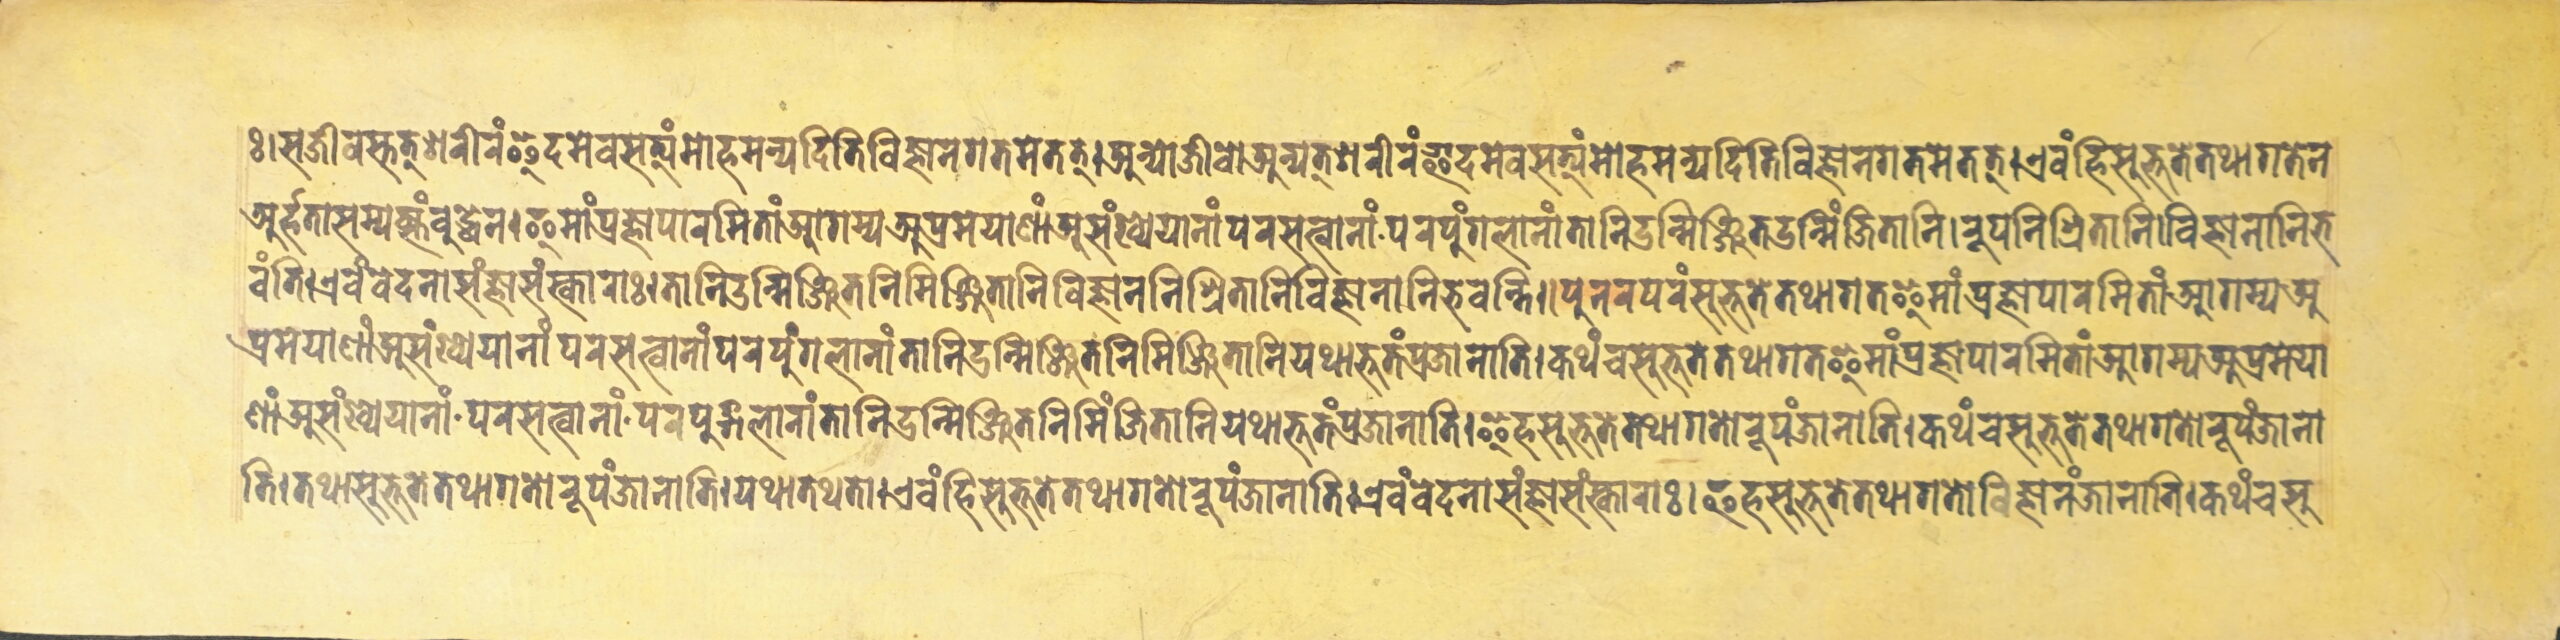 ः।सजीवस्तत्शरीरंइदमेवसत्यंमोहमन्यदितिविज्ञानगतमेतत्।अन्योजीवोअन्यत्शरीरंइदमेवसत्यंमोहमन्यदितिविज्ञानगतमेतत्।एवंहिसुभूतेतथागतेन
अर्हतासम्यक्संबुद्धेन।इमांप्रज्ञापारमितांआगम्यअप्रमेयाणांअसंख्येयानांपरसत्वानां·परपुंगलानांतानिउन्मिञ्जितउन्मिंजितानि।रूपनिश्रितानि।विज्ञानानिभ
वंति।एवंवेदनासंज्ञासंस्काराः।तानिउन्मिञ्जितनिमिञ्जितानिविज्ञाननिश्रितानिविज्ञानानिभवन्ति॥पुनरपरंसुभूतेतथागतइमांप्रज्ञापारमितांआगम्यअ
प्रमेयाणांअसंख्येयानांपरसत्वानांपरपुंगलानांतानिउन्मिञ्जितनिमिञ्जितानियथाभूतंप्रजानाति।कथंचसुभूतेतथागतइमांप्रज्ञापारमितांआगम्यअप्रमेया
णांअसंख्येयानां·परसत्वानां·परपुद्गलानांतानिउन्मिञ्जितनिमिंजितानियथाभूतंप्रजानाति।इहसुभूतेतथागतोरूपंजानाति।कथंचसुभूतेतथागतोरूपंजाना
ति।तथासुभूतेतथागतोरूपंजानाति।यथातथतो।एवंहिसुभूतेतथागतोरूपंजानाति।एवंवेदनासंज्ञासंस्काराः।इहसुभूतेतथागतोविज्ञानंजानाति।कथंचसु